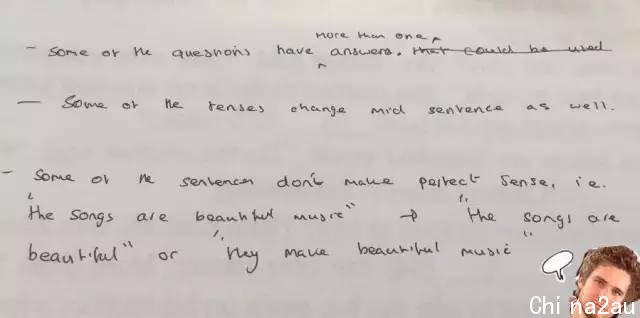 more than one
- Some of the questions have answers. that could be used
- Some of the tenses change mid sentence as well.
- Some of the sentences don't make perfect sense, i.e.
"the songs are beautiful music" → "the songs are
beautiful" or "they make beautiful music"
Chi na2au